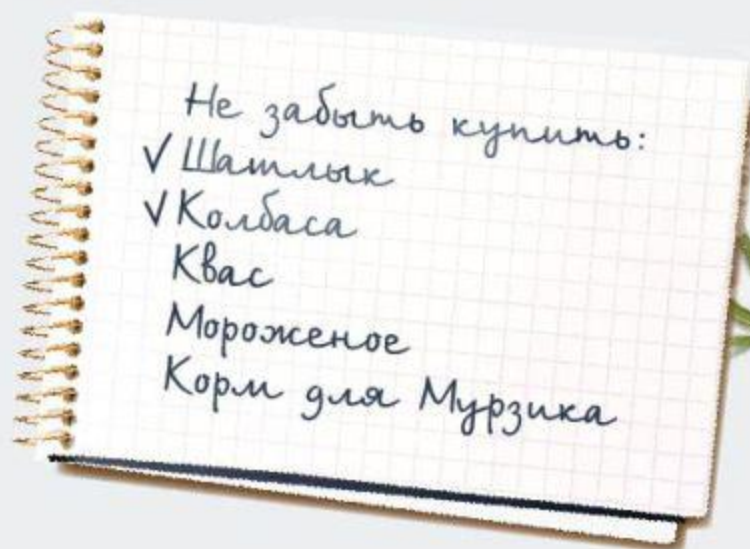 Не забыть купить:
√ Шашлык
√ Колбаса
Квас
Мороженое
Корм для Мурзика